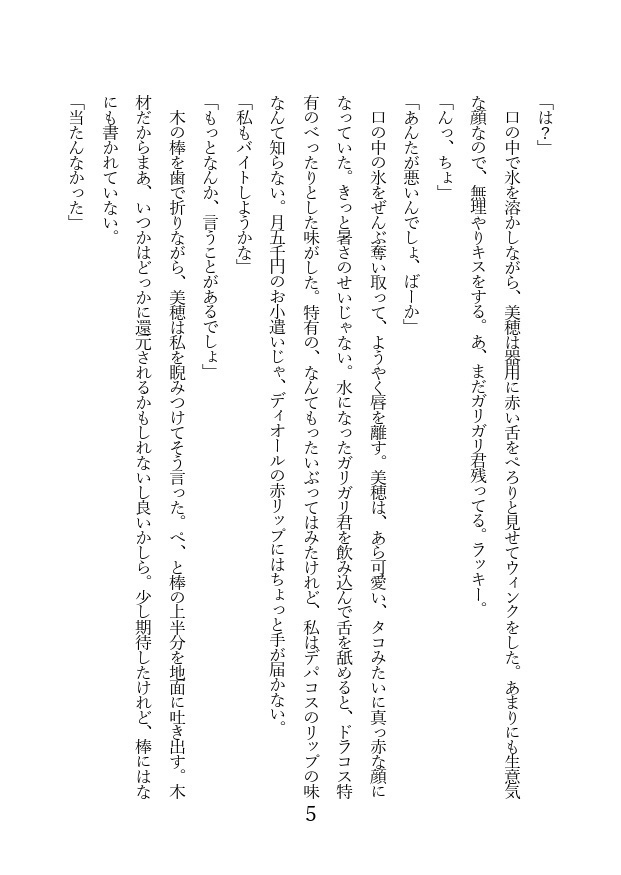 「は？」
　口の中で氷を溶かしながら、美穂は器用に赤い舌をぺろりと見せてウィンクをした。あまりにも生意気
な顔なので、無理やりキスをする。あ、まだガリガリ君残ってる。ラッキー。
「んっ、ちょ」
「あんたが悪いんでしょ、ばーか」
　口の中の氷をぜんぶ奪い取って、ようやく唇を離す。美穂は、あら可愛い、タコみたいに真っ赤な顔に
なっていた。きっと暑さのせいじゃない。水になったガリガリ君を飲み込んで舌を舐めると、ドラコス特
有のべったりとした味がした。特有の、なんてもったいぶってはみたけれど、私はデパコスのリップの味
なんて知らない。月五千円のお小遣いじゃ、ディオールの赤リップにはちょっと手が届かない。
「私もバイトしようかな」
「もっとなんか、言うことがあるでしょ」
　木の棒を歯で折りながら、美穂は私を睨みつけてそう言った。ぺ、と棒の上半分を地面に吐き出す。木
材だからまあ、いつかはどっかに還元されるかもしれないし良いかしら。少し期待したけれど、棒にはな
にも書かれていない。
「当たんなかった」
5